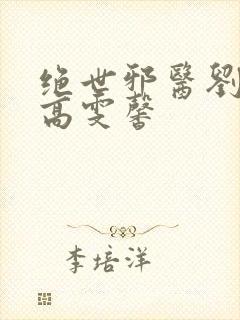 绝世邪醫劉
高雯馨
李培洋